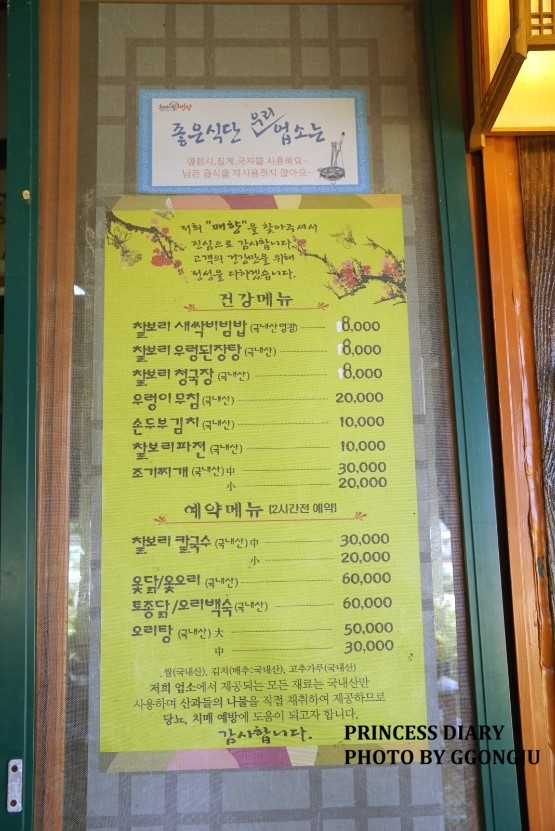 좋은식단 우리 업소는
양념시,집게,국자를 사용해요~
남은 음식을 재사용하지 않아요~
저희 "매향"을 찾아주셔서
진심으로 감사합니다.
고객의 건강만을 위해
정성을 다하겠습니다.
건강메뉴
찰보리 새싹비빔밥 (국내산 영광) 8,000
찰보리 우렁된장탕 (국내산) 8,000
찰보리 청국장 (국내산) 8,000
우렁이 무침 (국내산) 20,000
손두부김치 (국내산) 10,000
찰보리파전 (국내산) 10,000
조기찌개 (국내산) 中 30,000
小 20,000
예약메뉴 [2시간전 예약]
찰보리 칼국수 (국내산) 中 30,000
小 20,000
옻닭/옻오리 (국내산) 60,000
토종닭/오리백숙 (국내산) 60,000
오리탕 (국내산) 大 50,000
中 30,000
쌀(국내산), 김치(배추:국내산), 고추가루(국내산)
저희 업소에서 제공되는 모든 재료는 국내산만
사용하며 산과들의 나물을 직접 채취하여 제공하므로
당뇨, 치매 예방에 도움이 되고자 합니다.
감사합니다.
PRINCESS DIARY
PHOTO BY GGONGJU